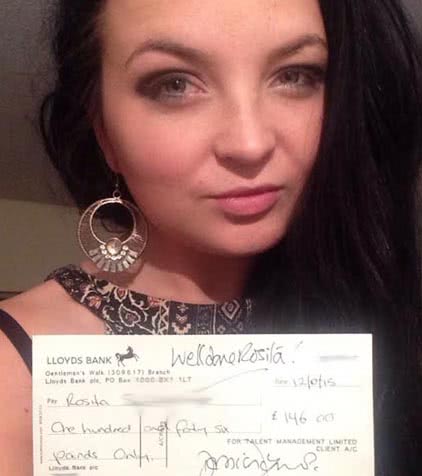 LLOYDS BANK Well done Rosita!
Gentleman's Walk (309617) Branch
Lloyds Bank plc, PO Box 1000 BX1 1LT
Date 12/0/15
Pay Rosita
One hundred and forty six £ 146 00
pounds Only. FOR TALENT MANAGEMENT LIMITED
CLIENT A/C
Lloyds Bank plc